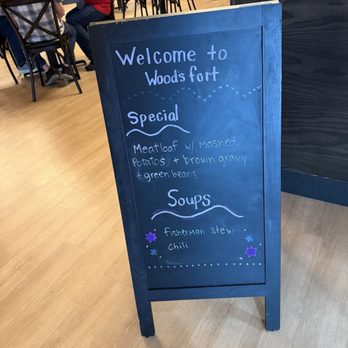 Welcome to
Woodsfort
Special
Meatloaf w/ Mashed
Potatos + brown gravy
+ green beans
Soups
fisherman stew
chili